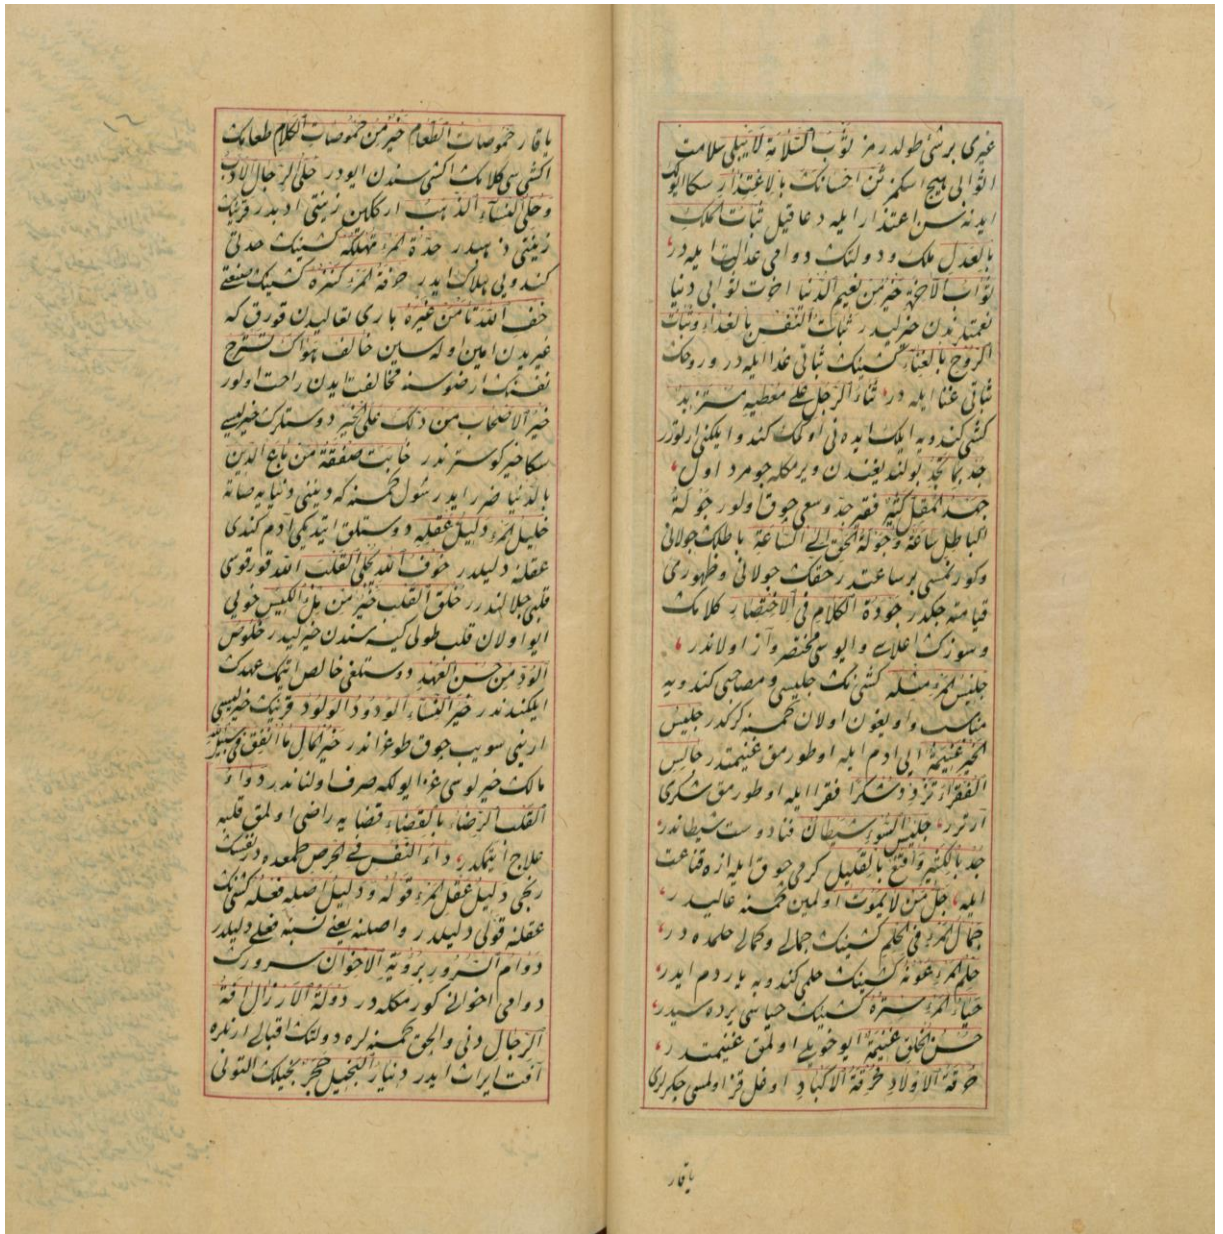 غیری برشئ طولدرمز ثَوْبُ السَّلَامَةِ لَا يَبْلَى سلامت
اثوابی هیچ اسکمز ثَنِّ اِحْسَانَكَ بِالْاِعْتِذَارِ سکا ایولک
ایدنه سن اعتذار ایله دعا قیل ثَبَاتُ الْمُلْكِ
بِالْعَدْلِ ملک و دولتک دوامی عدالت ایله در
ثَوَابُ الْآخِرَةِ خَيْرٌ مِنْ نَعِيمِ الدُّنْيَا اخرت ثوابی دنیا
نعمتندن خیرلیدر ثَبَاتُ النَّفْسِ بِالْغِذَاءِ وَثَبَاتُ
الرُّوحِ بِالْغِنَاءِ کشینک ثباتی غدا ایله در و روحک
ثباتی غنا ایله در ثَنَاءُ الرَّجُلِ عَلَى مُعْطِيهِ مُسْتَزِيدٌ
کشی کندویه ایلک ایده نی اوکمک کندو ایلکنی ارتورر
جُدْ بِمَا تَجِدُ بولندیغندن ویرمکله جومرد اول
جَهْدُ الْمُقِلِّ كَثِيرٌ فقیر جد و سعی چوق اولور جَوْلَةُ
الْبَاطِلِ سَاعَةٌ وَجَوْلَةُ الْحَقِّ اِلَى السَّاعَةِ باطلک جولانی
وکورنمسی بر ساعتدر حقک جولانی و ظهوری
قیامته جکدر جَوْدَةُ الْكَلَامِ فِي الْاِخْتِصَارِ کلامک
وسوزک اعلاسی و ایوسی مختصر و آز اولاندر
جَلِيسُ الْمَرْءِ مِثْلُهُ کشی نک جلیسی و مصاحبی کندویه
مناسب و اویغون اولان کمسنه کرکدر جَلِيسُ
الْخَيْرِ غَنِيمَةٌ ایی ادم ایله اوطورمق غنیمتدر جَالِسِ
الْفُقَرَاءَ تَزْدَدْ شُكْرًا فقرا ایله اوطورمق شکری
آرترر جَلِيسُ السُّوءِ شَيْطَانٌ فنا دوست شیطاندر
جُدْ بِالْكَثِيرِ وَاقْنَعْ بِالْقَلِيلِ کرمی چوق ایله ازه قناعت
ایله جَلَّ مَنْ لَا يَمُوتُ اولمین کمسنه عالیدر
جَمَالُ الْمَرْءِ فِي الْحِلْمِ کشینک جمالی و کمالی حلمده در
حِلْمُ الْمَرْءِ عَوْنُهُ کشینک حلمی کندویه یاردم ایدر
حَيَاءُ الْمَرْءِ سِتْرُهُ کشینک حیاسی پرده سیدر
حُسْنُ الْخُلُقِ غَنِيمَةٌ ایو خویلی اولمق غنیمتدر
حُرْقَةُ الْاَوْلَادِ حُرْقَةُ الْاَكْبَادِ اوغل قز اولمسی جکرلری
یاقار
١٦
یاقار حُمُوضَاتُ الطَّعَامِ خَيْرٌ مِنْ حُمُوضَاتِ الْكَلَامِ طعامک
اکشیسی کلامک اکشی سندن ایودر حُلِيُّ الرِّجَالِ الْاَدَبُ
وَحُلِيُّ النِّسَاءِ الذَّهَبُ ارککلرن زینتی ادبدر قرینک
زینتی ذهبدر حِدَّةُ الْمَرْءِ تُهْلِكُهُ کشینک حدتی
کندویی هلاک ایدر حِرْفَةُ الْمَرْءِ كَنْزُهُ کشینک صنعتی
خَفِ اللّٰهَ تَأْمَنْ غَيْرَهُ باری تعالیدن قورق که
غیریدن امین اوله سین خَالِفْ هَوَاكَ تَسْتَرِحْ
نفسنک ارضوسنه مخالفت ایدن راحت اولور
خَيْرُ الْاَصْحَابِ مَنْ دَلَّكَ عَلَى الْخَيْرِ دوستلرک خیرلیسی
سکا خیر کوسترندر خَابَتْ صَفْقَةُ مَنْ بَاعَ الدِّينَ
بِالدُّنْيَا ضرر ایدر شول کمسنه که دینی دنیایه صاته
خَلِيلُ الْمَرْءِ دَلِيلُ عَقْلِهِ دوستلق ایتدیکی آدم کندی
عقلنه دلیلدر خَوْفُ اللّٰهِ يُجَلِّي الْقَلْبَ الله قورقوسی
قلبی جلالندرر خُلُوُّ الْقَلْبِ خَيْرٌ مِنْ مِلْءِ الْكِيسِ خویی
ایو اولان قلب طولی کیسه سندن خیرلیدر خُلُوصُ
الْوُدِّ مِنْ حُسْنِ الْعَهْدِ دوستلغی خالص ایتمک عهدک
ایلکندندر خَيْرُ النِّسَاءِ الْوَدُودُ الْوَلُودُ قرینک خیرلیسی
ارینی سویب چوق طوغراندر خَيْرُ الْمَالِ مَا اُنْفِقَ فِي سَبِيلِ اللّٰهِ
مالک خیرلوسی غزا یولنه صرف اولناندر دَوَاءُ
الْقَلْبِ الرِّضَاءُ بِالْقَضَاءِ قضایه راضی اولمق قلبه
علاج ایتمکدر دَاءُ النَّفْسِ فِي الْحِرْصِ طمعده در نفسک
رنجی دَلِيلُ عَقْلِ الْمَرْءِ قَوْلُهُ وَدَلِيلُ اَصْلِهِ فِعْلُهُ کشینک
عقلنه قولی دلیلدر و اصلنه یعنی نسبنه فعلی دلیلدر
دَوَامُ السُّرُورِ بِرُؤْيَةِ الْاِخْوَانِ سرورک
دوامی اخوانی کورمکله در دَوْلَةُ الْاَرْذَالِ آفَةُ
الرِّجَالِ دنی و الچق کمسنه لره دولتک اقبالی ارنلره
آفت ایراث ایدر دِينَارُ الْبَخِيلِ حَجَرٌ بخیلک التونی